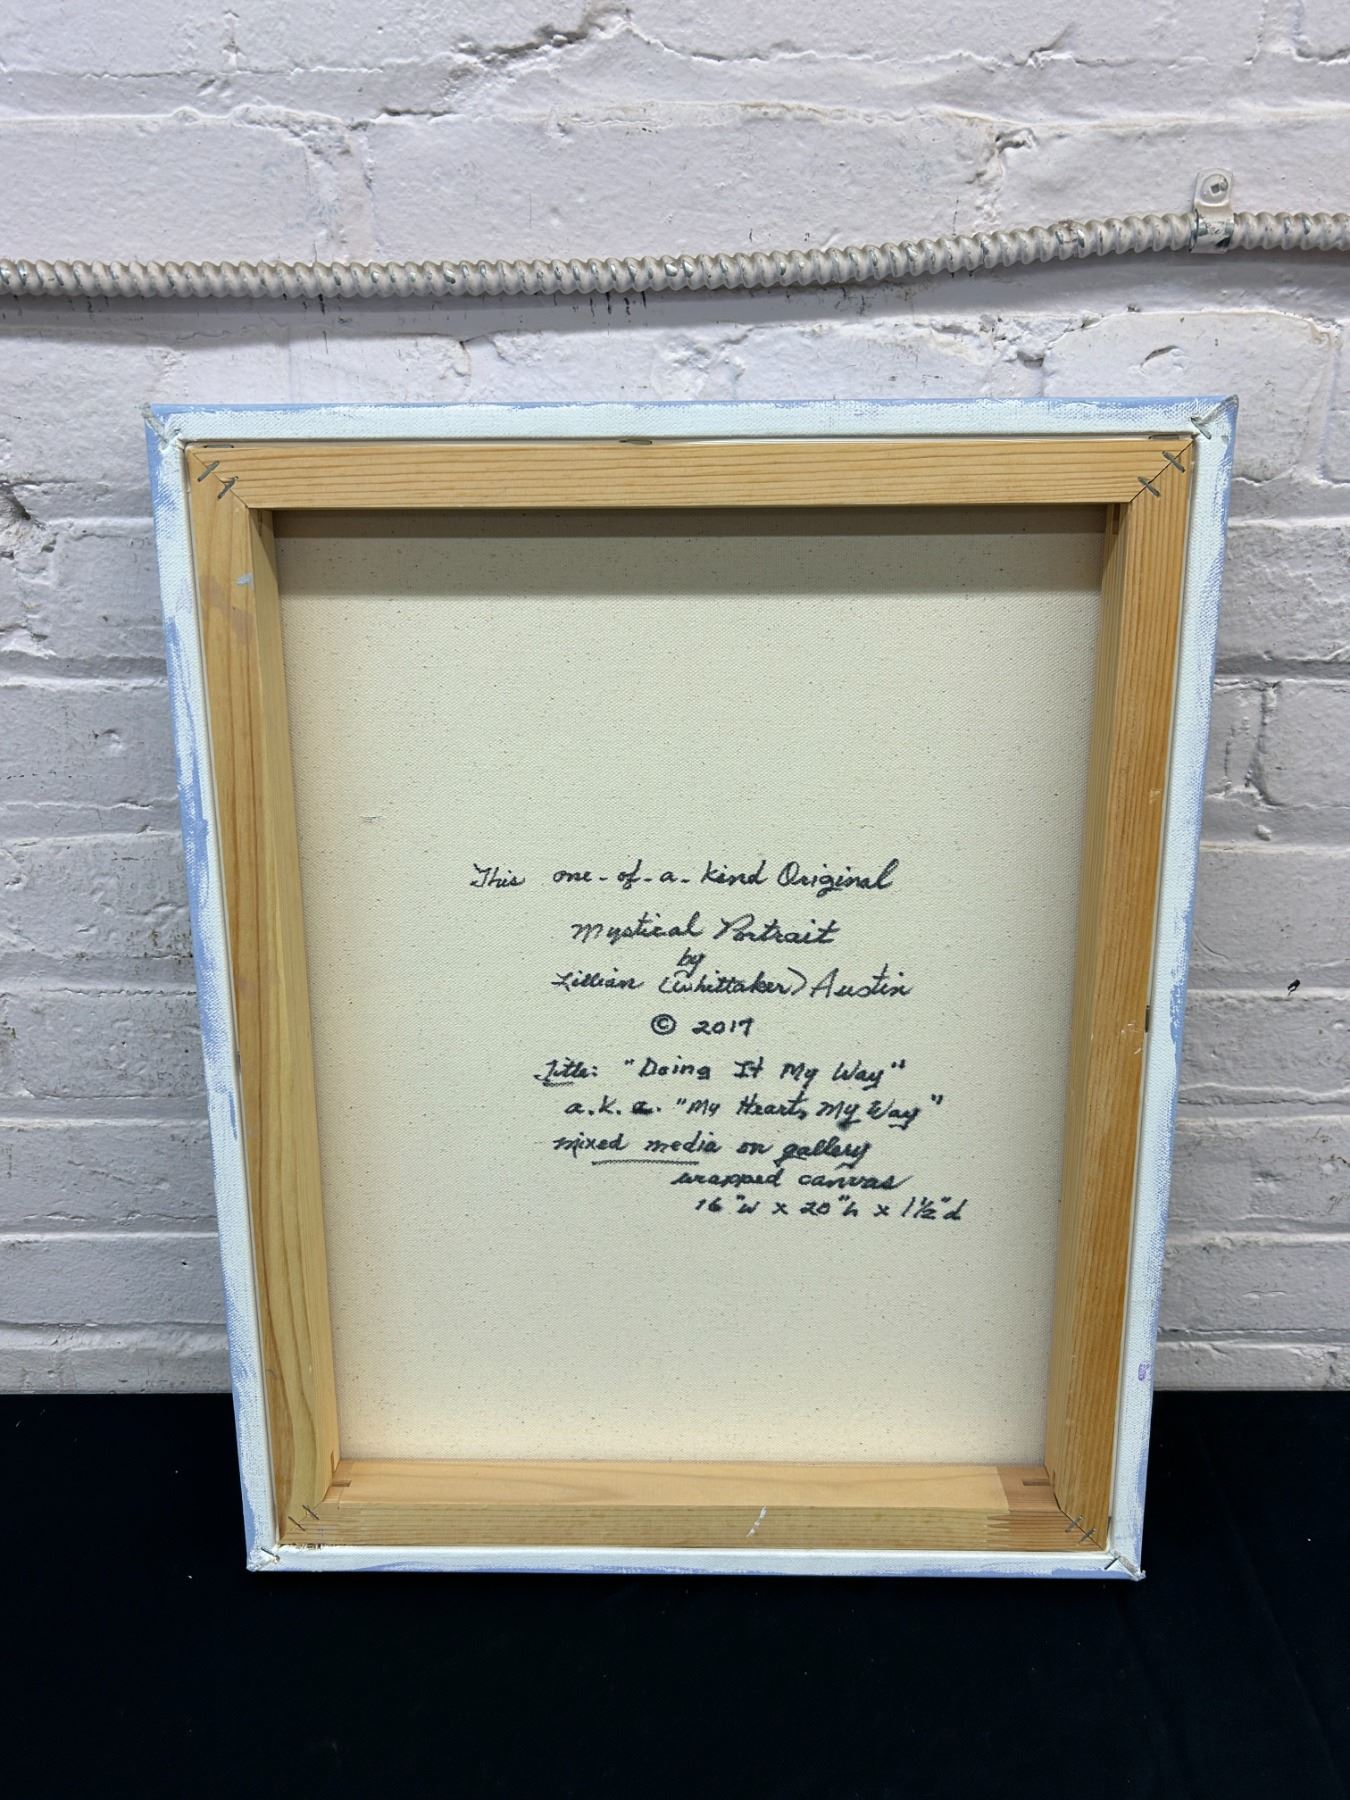 This one-of-a-kind Original
Mystical Portrait
by
Lillian (Whittaker) Austin
© 2017
Title: "Doing It My Way"
a.k.a. "My Heart, My Way"
mixed media on gallery
wrapped canvas
16"w x 20"h x 1½"d